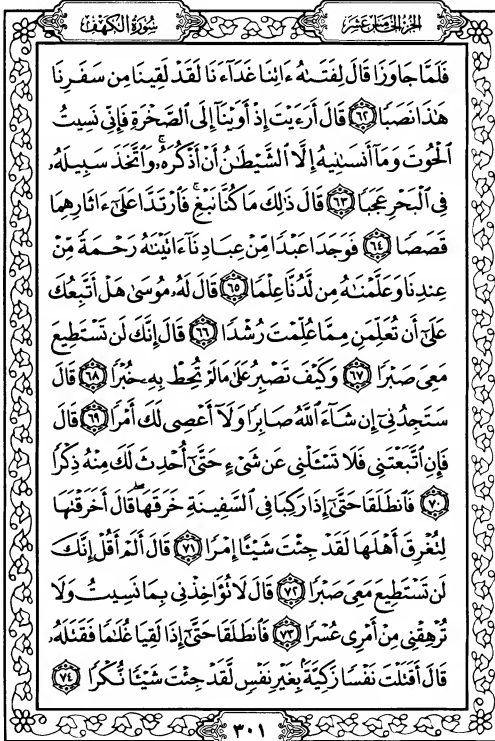 سُورَةُ الكَهْفِ الجُزْءُ الخَامِسَ عَشَرَ
فَلَمَّا جَاوَزَا قَالَ لِفَتَىٰهُ ءَاتِنَا غَدَآءَنَا لَقَدْ لَقِينَا مِن سَفَرِنَا
هَٰذَا نَصَبًا ٦٢ قَالَ أَرَءَيْتَ إِذْ أَوَيْنَآ إِلَى ٱلصَّخْرَةِ فَإِنِّي نَسِيتُ
ٱلْحُوتَ وَمَآ أَنسَىٰنِيهُ إِلَّا ٱلشَّيْطَٰنُ أَنْ أَذْكُرَهُۥۚ وَٱتَّخَذَ سَبِيلَهُۥ
فِي ٱلْبَحْرِ عَجَبًا ٦٣ قَالَ ذَٰلِكَ مَا كُنَّا نَبْغِۚ فَٱرْتَدَّا عَلَىٰٓ ءَاثَارِهِمَا
قَصَصًا ٦٤ فَوَجَدَا عَبْدًا مِّنْ عِبَادِنَآ ءَاتَيْنَٰهُ رَحْمَةً مِّنْ
عِندِنَا وَعَلَّمْنَٰهُ مِن لَّدُنَّا عِلْمًا ٦٥ قَالَ لَهُۥ مُوسَىٰ هَلْ أَتَّبِعُكَ
عَلَىٰٓ أَن تُعَلِّمَنِ مِمَّا عُلِّمْتَ رُشْدًا ٦٦ قَالَ إِنَّكَ لَن تَسْتَطِيعَ
مَعِيَ صَبْرًا ٦٧ وَكَيْفَ تَصْبِرُ عَلَىٰ مَا لَمْ تُحِطْ بِهِۦ خُبْرًا ٦٨ قَالَ
سَتَجِدُنِيٓ إِن شَآءَ ٱللَّهُ صَابِرًا وَلَآ أَعْصِي لَكَ أَمْرًا ٦٩ قَالَ
فَإِنِ ٱتَّبَعْتَنِي فَلَا تَسْـَٔلْنِي عَن شَيْءٍ حَتَّىٰٓ أُحْدِثَ لَكَ مِنْهُ ذِكْرًا
٧٠ فَٱنطَلَقَا حَتَّىٰٓ إِذَا رَكِبَا فِي ٱلسَّفِينَةِ خَرَقَهَاۖ قَالَ أَخَرَقْتَهَا
لِتُغْرِقَ أَهْلَهَا لَقَدْ جِئْتَ شَيْـًٔا إِمْرًا ٧١ قَالَ أَلَمْ أَقُلْ إِنَّكَ
لَن تَسْتَطِيعَ مَعِيَ صَبْرًا ٧٢ قَالَ لَا تُؤَاخِذْنِي بِمَا نَسِيتُ وَلَا
تُرْهِقْنِي مِنْ أَمْرِي عُسْرًا ٧٣ فَٱنطَلَقَا حَتَّىٰٓ إِذَا لَقِيَا غُلَٰمًا فَقَتَلَهُۥ
قَالَ أَقَتَلْتَ نَفْسًا زَكِيَّةًۢ بِغَيْرِ نَفْسٍ لَّقَدْ جِئْتَ شَيْـًٔا نُّكْرًا ٧٤
٣٠١